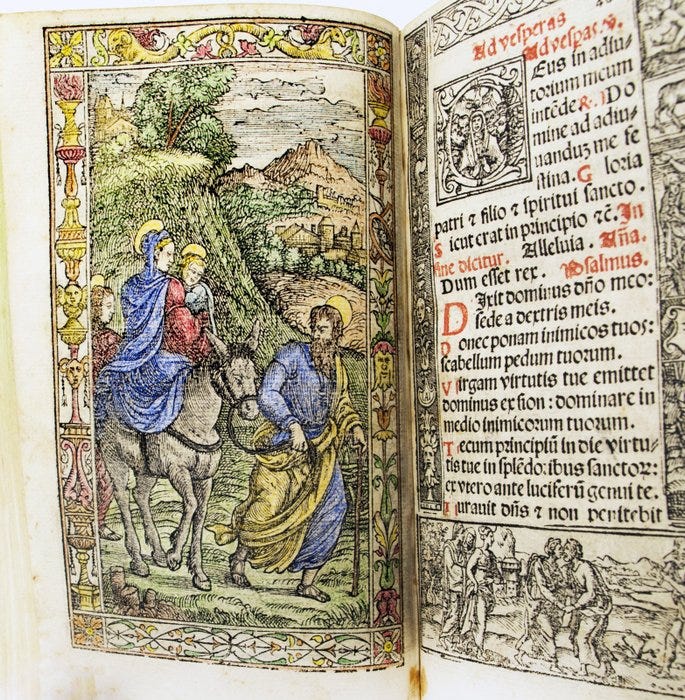 Ad vesperas
Ad vesp̄as. v̄.
Eus in adiu-
torium meum
intẽde ⁊. Do
mine ad adiu-
uanduʒ me fe
stina. Gloria
patri ⁊ filio ⁊ spiritui sancto.
Sicut erat in principio ⁊c̃. In
fine dicitur. Alleluia. Aña.
Dum esset rex. Psalmus.
Dixit dominus dño meo:
sede a dextris meis.
Donec ponam inimicos tuos:
scabellum pedum tuorum.
Virgam virtutis tue emittet
dominus ex sion: dominare in
medio inimicorum tuorum.
Tecum principiũ in die virtu-
tis tue in splẽdoribus sanctor:
ex vtero ante luciferũ genui te.
Iurauit dñs ⁊ non penitebit